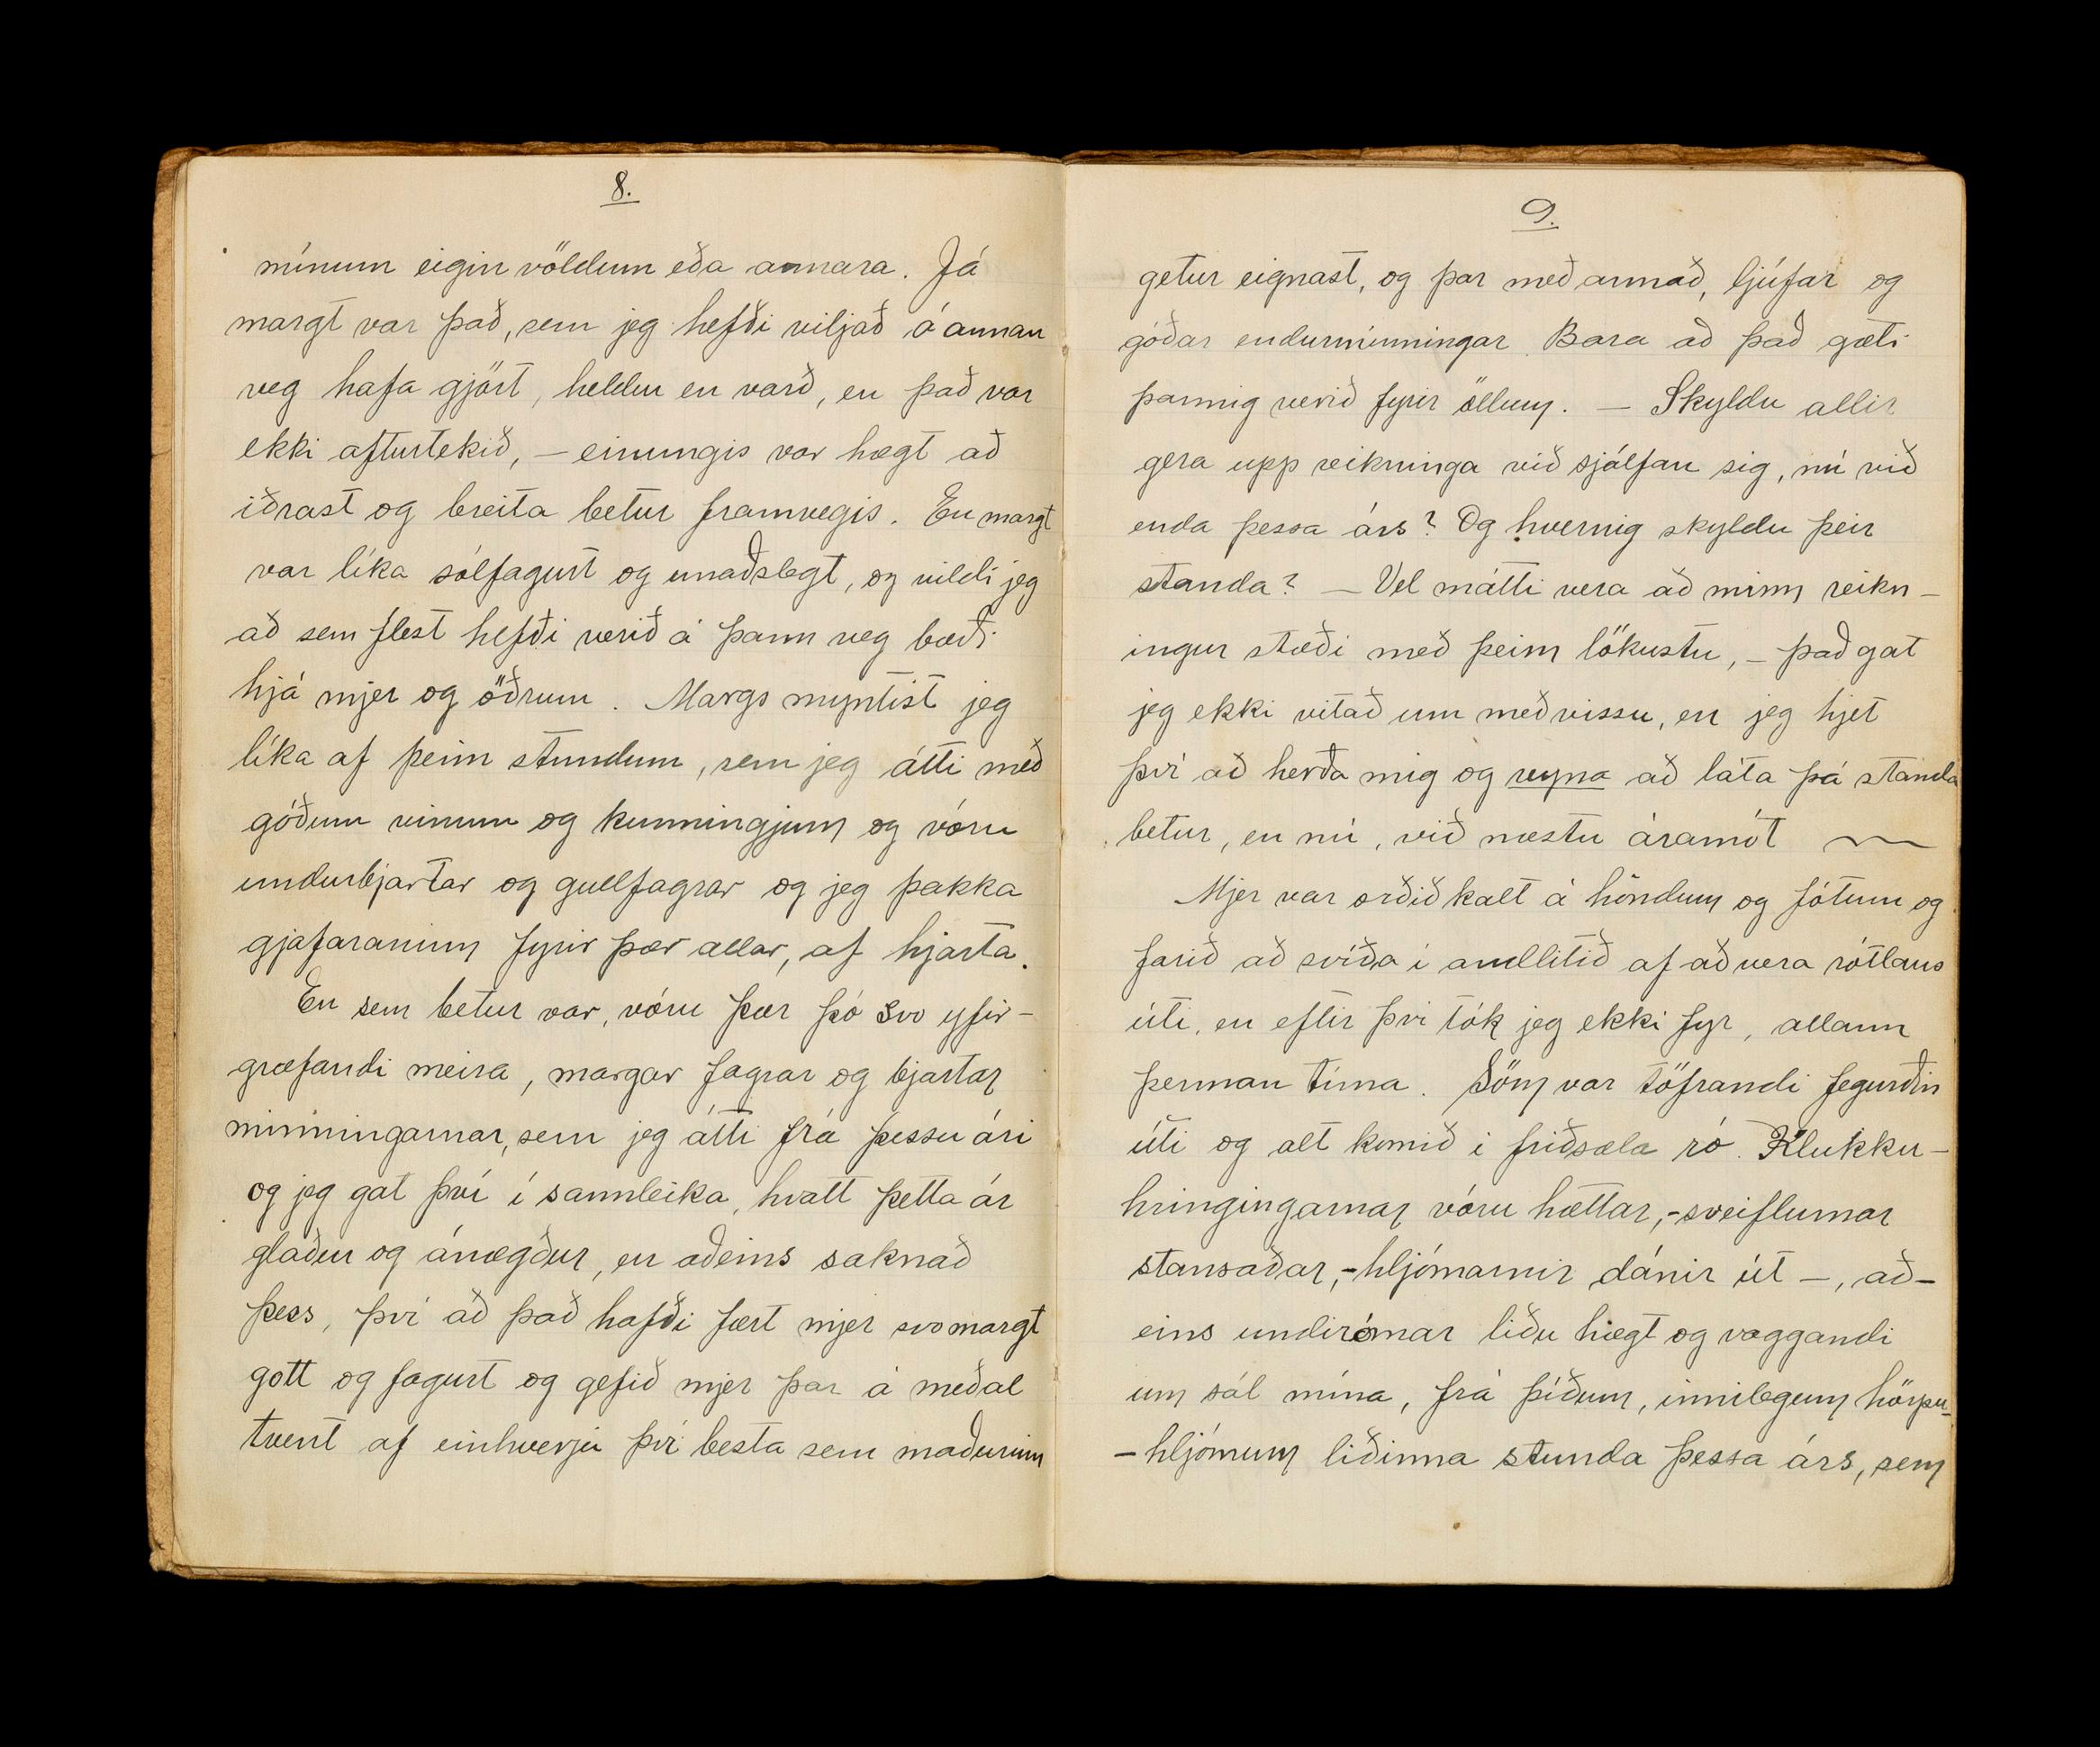 8.
mínum eigin völdum eða annara. Já
margt var það, sem jeg hefði viljað á annan
veg hafa gjört, heldur en varð, en það var
ekki afturtekið, — einungis var hægt að
iðrast og breita betur framvegis. En margt
var líka sólfagurt og unaðslegt, og vildi jeg
að sem flest hefði verið á þann veg bæði
hjá mjer og öðrum. Margs myntist jeg
líka af þeim stundum, sem jeg átti með
góðum vinum og kunningjum og vóru
undurbjartar og gullfagrar og jeg þakka
gjafaranum fyrir þær allar, af hjarta.
En sem betur var, vóru þær þó svo yfir-
græfandi meira, margar fagrar og bjartar
minningarnar, sem jeg átti frá þessu ári
og jeg gat því í sannleika, kvatt þetta ár
glaður og ánægður, en aðeins saknað
þess, því að það hafði fært mjer svo margt
gott og fagurt og gefið mjer þar á meðal
tvent af einhverju því besta sem maðurinn
9.
getur eignast, og þar með annað, ljúfar og
góðar endurminningar. Bara að það gæti
þannig verið fyrir öllum. — Skyldu allir
gera upp reikninga við sjálfan sig, nú við
enda þessa árs? Og hvernig skyldu þeir
standa? — Vel mátti vera að minn reikn-
ingur stæði með þeim lökustu, — það gat
jeg ekki vitað um með vissu, en jeg hjet
því að herða mig og reyna að láta þá standa
betur, en nú, við næstu áramót ~
Mjer var orðið kalt á höndum og fótum og
farið að svíða í andlitið af að vera rótlaus
úti, en eftir því tók jeg ekki fyr, allann
þennan tíma. Söm var töfrandi fegurðin
úti og alt komið í friðsæla ró. Klukku-
hringingarnar vóru hættar, - sveiflurnar
stansaðar, - hljómarnir dánir út —, að-
eins undirómar liðu hægt og vaggandi
um sál mína, frá þíðum, innilegum hörpu-
- hljómum liðinna stunda þessa árs, sem